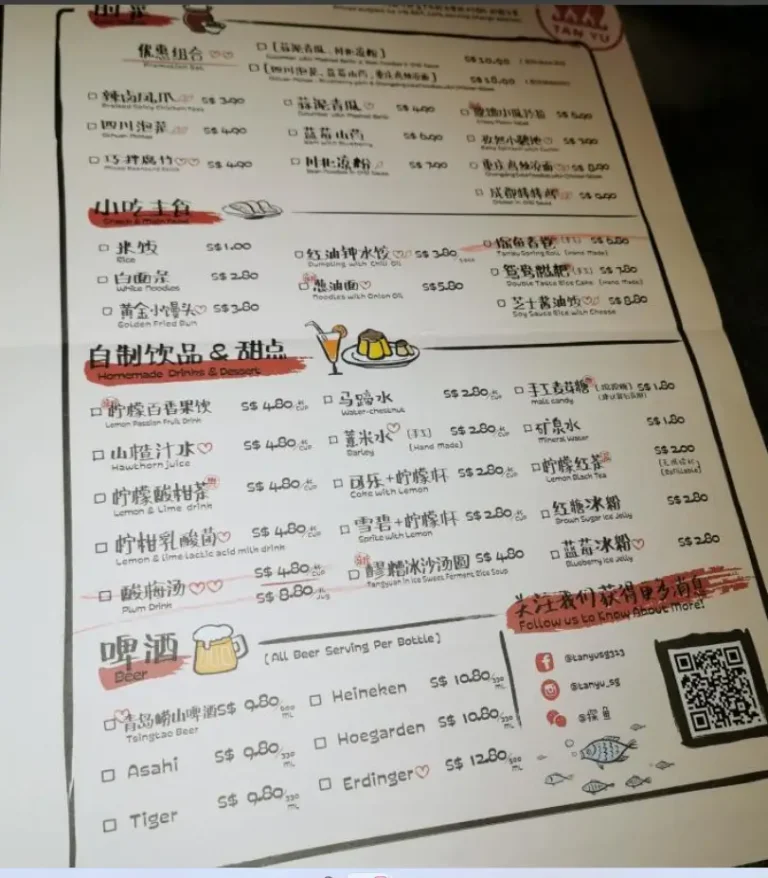 TAN YU
优惠组合
Promotion Set
S$10.00
S$18.00
辣卤凤爪 S$ 3.90
蒜泥青瓜 S$ 4.90
S$ 6.90
四川泡菜 S$ 4.90
Sichuan Pickles
蓝莓山药 S$ 6.90
Yam with Blueberry
S$ 7.90
巧拌腐竹 S$ 4.90
川北凉粉 S$ 7.90
S$ 8.90
成都棒棒鸡
Chicken in Chili Sauce
小吃主食
Snack & Main Food
米饭 S$1.00
Rice
红油钟水饺 S$ 3.80
Dumpling with Chili Oil
探鱼春卷 (手工) S$ 6.80
Tanyu Spring Roll (Hand Made)
白面条 S$ 2.80
White Noodles
葱油面 S$5.80
Noodles with Onion Oil
鸳鸯糍粑 (手工) S$ 7.80
Double Taste Rice Cake (Hand Made)
黄金小馒头 S$3.80
Golden Fried Bun
芝士酱油饭 S$ 8.80
Soy Sauce Rice with Cheese
自制饮品 & 甜点
Homemade Drinks & Dessert
柠檬百香果饮 S$ 4.80/杯 CUP
Lemon Passion Fruit Drink
马蹄水 S$ 2.80/杯 CUP
Water-chestnut
手工麦芽糖 S$ 1.80
malt candy
山楂汁水 S$ 4.80/杯 CUP
Hawthorn juice
薏米水 (手工) S$ 2.80/杯 CUP
Barley (Hand Made)
矿泉水 S$ 1.80
Mineral Water
柠檬酸柑茶 S$ 4.80/杯 CUP
Lemon & Lime drink
可乐+柠檬杯 S$ 2.80/杯 CUP
Coke with Lemon
柠檬红茶 S$ 2.00
Lemon Black Tea (Refillable)
柠柑乳酸菌 S$ 4.80/杯 CUP
Lemon & lime lactic acid milk drink
雪碧+柠檬杯 S$ 2.80/杯 CUP
Sprite with Lemon
红糖冰粉 S$ 2.80
Brown Sugar Ice Jelly
酸梅汤 S$ 4.80/杯 CUP
Plum Drink S$ 8.80/JUG
醪糟冰沙汤圆 S$ 4.80
Tangyuan in Ice Sweet Ferment Rice Soup
蓝莓冰粉 S$ 2.80
Blueberry Ice Jelly
关注我们获得更多消息
Follow us to Know About More!
啤酒
Beer
(All Beer Serving Per Bottle)
青岛崂山啤酒 S$ 9.80/600 ML
Tsingtao Beer
Heineken S$ 10.80/330 ML
@tanyusg313
Asahi S$ 9.80/330 ML
Hoegarden S$ 10.80/330 ML
@tanyu_sg
Tiger S$ 9.80/330 ML
Erdinger S$ 12.80/500 ML
@探鱼